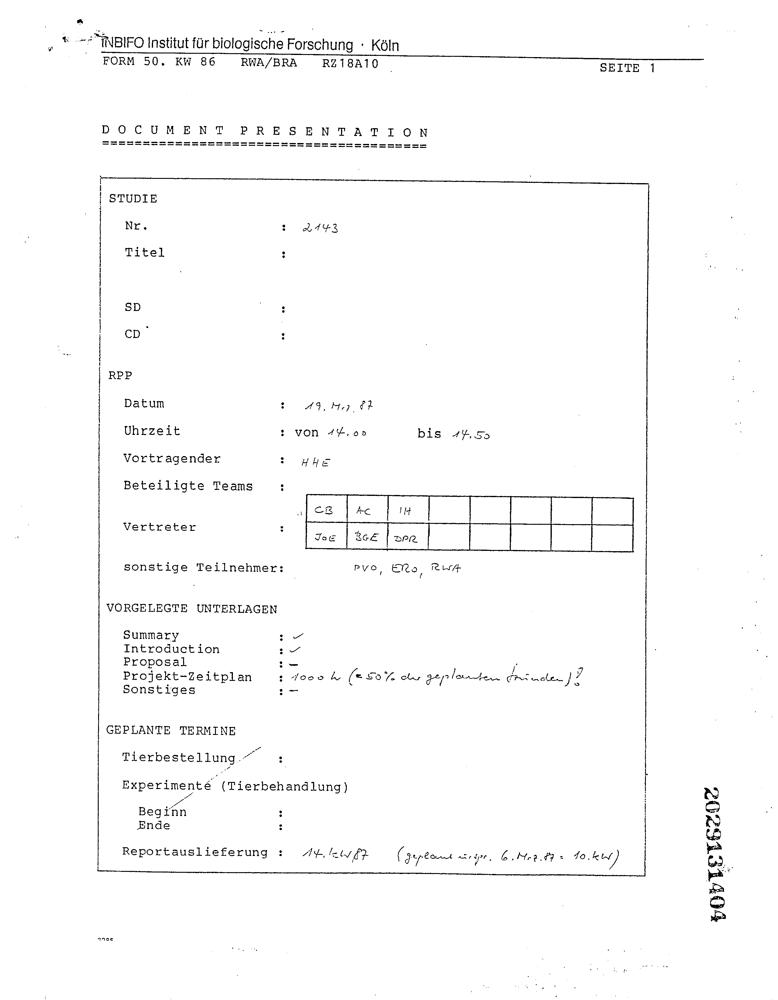 INBIFO Institut für biologische Forschung · Köln
FORM 50. KW 86 RWA/BRA RZ18A10
SEITE 1
D O C U M E N T P R E S E N T A T I O N
=======================================
STUDIE
Nr. : 2143
Titel :
SD :
CD :
RPP
Datum : 19. Mrz. 87
Uhrzeit : von 14.00 bis 14.50
Vortragender : HHE
Beteiligte Teams :
CB AC IH
Vertreter :
JOE BGE DPR
sonstige Teilnehmer: PVO, ERO, RWA
VORGELEGTE UNTERLAGEN
Summary : ✓
Introduction : ✓
Proposal : –
Projekt-Zeitplan : 1000 h (= 50% der geplanten Stunden)!
Sonstiges : –
GEPLANTE TERMINE
Tierbestellung :
Experimente (Tierbehandlung)
Beginn :
Ende :
Reportauslieferung : 14. KW 87 (geplant 6. Mrz. 87 = 10. KW)
2029131404